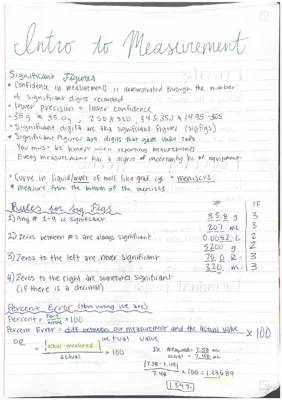 Intro to Measurement
Significant Figures
* Confidence in measurements is demonstrated through the number
of significant digits recorded
* lower precision = lower confidence
* Significant digits are aka significant figures (sigfigs)
* Significant figures are digits that give value info
You must be honest when reporting measurements
Every measurement has a degree of uncertainty bc of equipment
* Curve in liquid/water of tools like grad. cyl. = meniscus
* measure from the bottom of the meniscus
Rules for Sig Figs
SF
1) Any # 1-9 is significant
35.8 g 3
207 mL 3
2) Zeros between #s are always significant
0.0052 L 2
5200 g 2
3) Zeros to the left are never significant
70.0 3
320. m 3
4) Zeros to the right are sometimes significant
(if there is a decimal)
Percent Error (How wrong we are)
Percent = Part × 100
Percent Error = diff between our measurement and the actual value × 100
actual value
OR = |actual-measured| × 100
actual
Ex. measured = 7.58 mL
actual = 7.48 mL
|7.58-7.48|
7.48 × 100 = 1.33689
1.34%